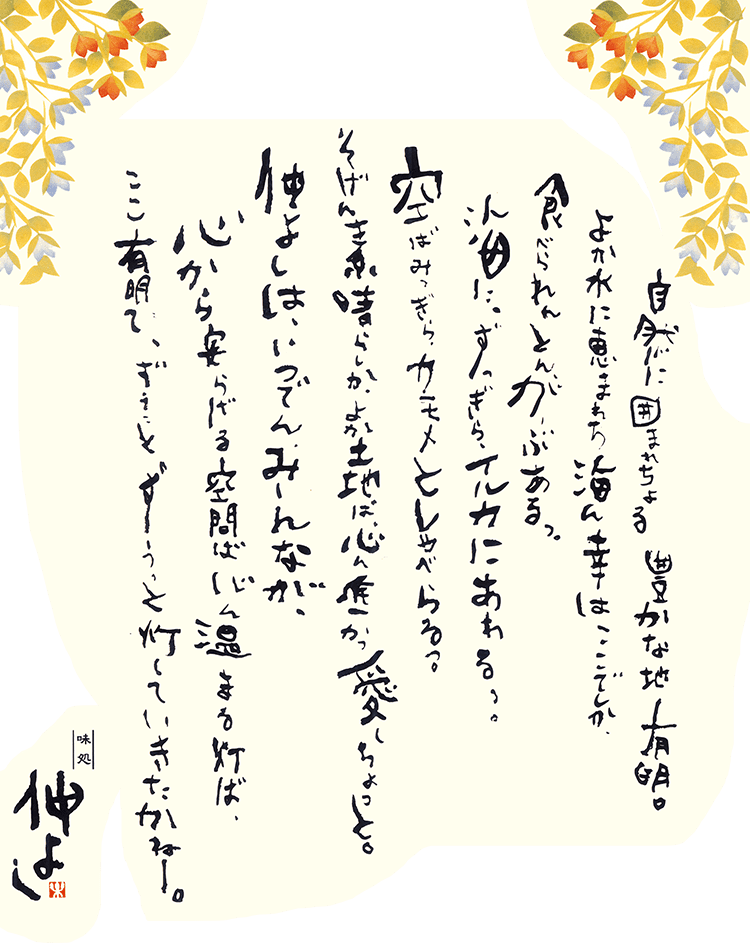 自然に囲まれちょる 豊かな地 有明。
よか水に恵まれた海ん幸は、ここでしか、
食べられんとんが、ぶあるっ。
海に、ずっぎら、イルカにあわるっ。
空ばみっぎら、カモメとしゃべらるっ。
そげんき素晴らしか、よか土地ば、心ん底かっ愛しちょっと。
伸よしは、いつでん、みーんなが、
心から安らげる空間ば心ん温まる灯ば、
ここ有明で、ずーっとずーうっと灯していきたかねー。
味処
伸よし